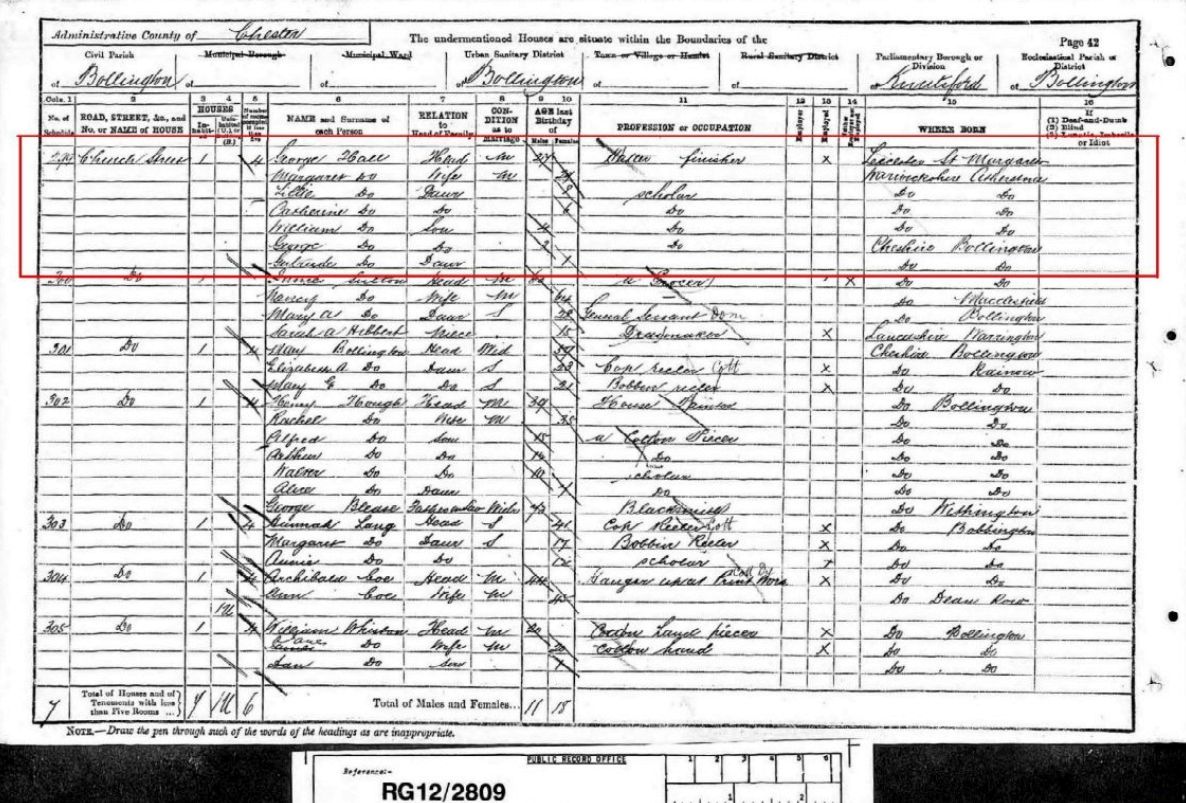 Administrative County of Chester The undermentioned Houses are situate within the Boundaries of the Page 42
Civil Parish Municipal Borough Municipal Ward Urban Sanitary District Town or Village or Hamlet Rural Sanitary District Parliamentary Borough or Division Ecclesiastical Parish or District
of Bollington of of of Bollington of of of Knutsford of Bollington
Cols. 1 2 3 4 5 6 7 8 9 10 11 12 13 14 15 16
No. of Schedule ROAD, STREET, &c., and No. or NAME of HOUSE HOUSES Inhabited Uninhabited (U.), or (B.) Number of rooms occupied if less than five NAME and Surname of each Person RELATION to Head of Family CONDITION as to Marriage AGE last Birthday of Males Females PROFESSION or OCCUPATION Employer Employed WHERE BORN If (1) Deaf-and-Dumb (2) Blind (3) Lunatic, Imbecile or Idiot
299 Church Street 1 4 George Hall Head M 27 finisher X Leicester St Margarets
Margaret Do Wife M Warwickshire Atherstone
Lillie Do Daur scholar Do Do
Catherine Do Do 6 Do Do Do
William Do Son 4 Do Do Do
George Do Do 2 Do Cheshire Bollington
Gertrude Do Daur 1 Do Do
300 Do 1 Head M Grocer X Do Do
Do Wife M 64 Do Macclesfield
Mary A Do Daur S 28 General Servant Dom Do Bollington
Sarah A Hibbert Niece 15 Dressmaker X Lancashire Warrington
301 Do 1 4 Mary Bollington Head Wid Cheshire Bollington
Elizabeth A Do Daur S 23 Cop reeler Cott X Do Rainow
Mary E Do Do S 21 Bobbin reeler X Do Do
302 Do 1 4 Henry Hough Head M 39 House Painter Do Bollington
Rachel Do Wife M 38 Do Do
Alfred Do Son 15 Cotton Piecer Do Do
Arthur Do Do 14 Do Do Do
Walter Do Do 10 scholar Do Do
Alice Do Daur 7 Do Do Do
George Blease Father in Law Widr 73 Blacksmith Do Withington
303 Do 1 4 Hannah Lang Head S 41 Cop Reeler Cott X Do Bollington
Margaret Do Daur S 17 Bobbin Reeler X Do Do
Annie Do Do 12 scholar X Do Do
304 Do 1 4 Archibald Coe Head M 44 Print X Do Do
Ann Coe Wife M 43 Do Dean Row
1U
305 Do 1 4 William Head M 20 Cotton hand piecer X Do Bollington
Do Wife M 20 Cotton hand X Do Do
Do Son 1 Do Do
7 Total of Houses and of Tenements with less than Five Rooms ... 7 1U 6 Total of Males and Females... 11 18
NOTE.—Draw the pen through such of the words of the headings as are inappropriate.
PUBLIC RECORD OFFICE 1 2 3 4 5 6
Reference:-
RG12/2809 1 2